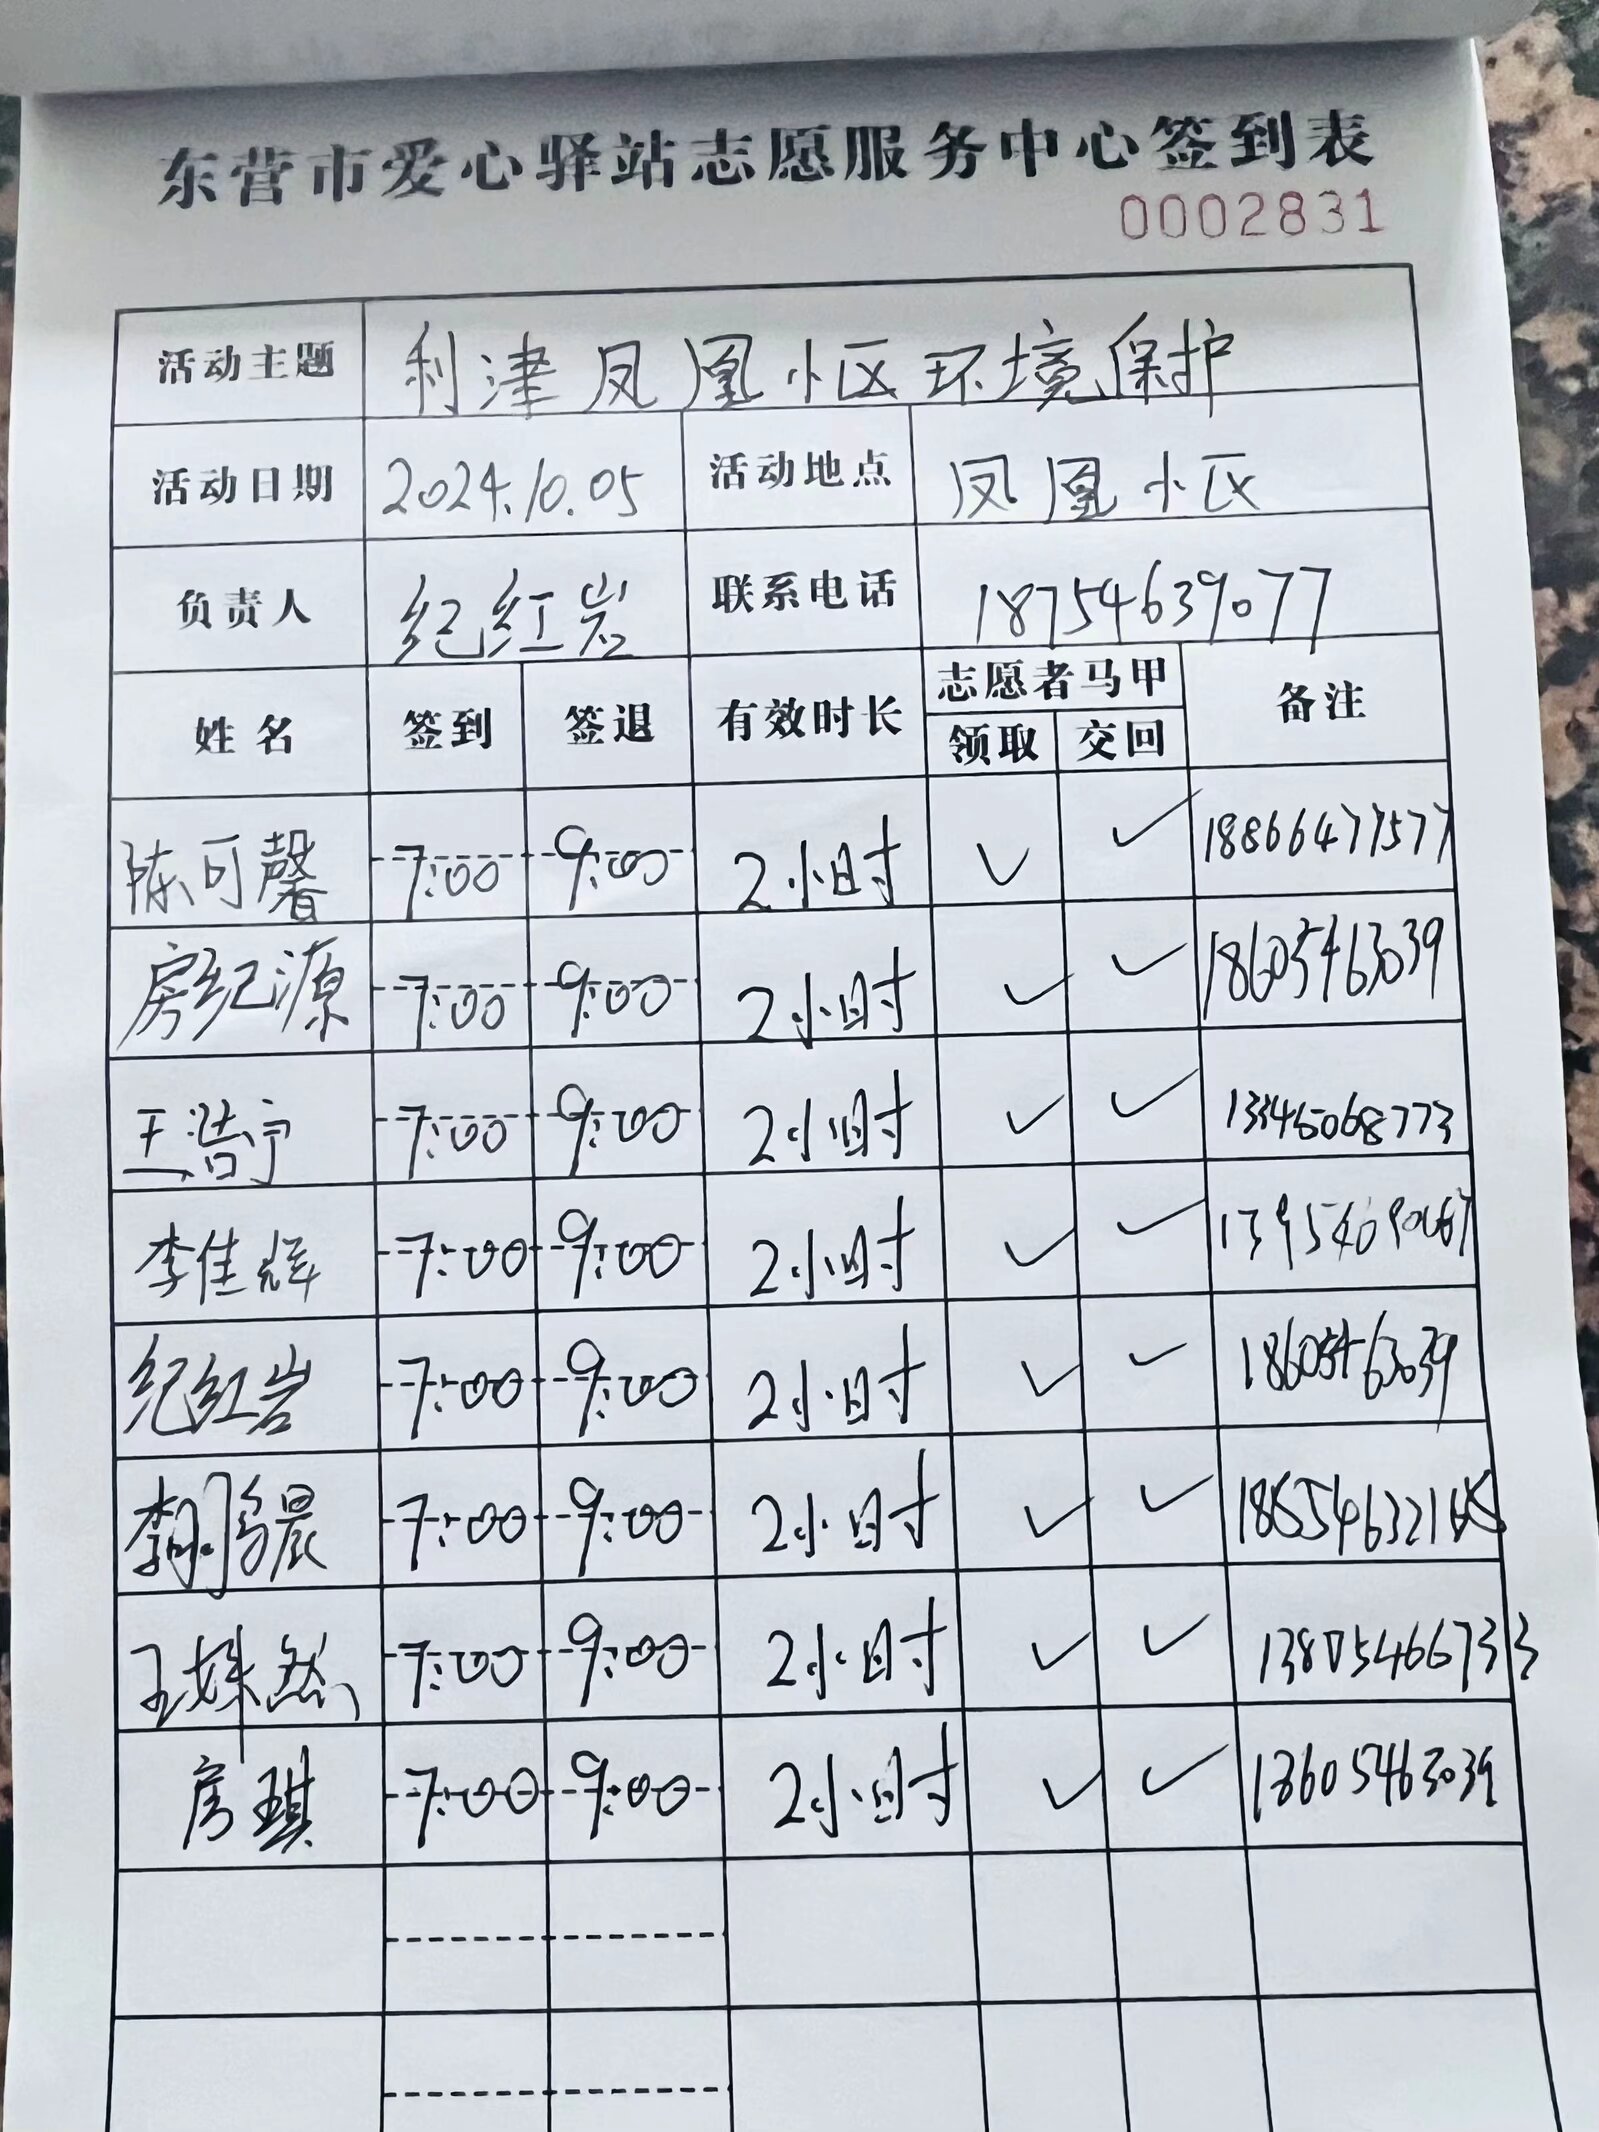 东营市爱心驿站志愿服务中心签到表
0002831
活动主题 利津凤凰小区环境保护
活动日期 2024.10.05 活动地点 凤凰小区
负责人 纪红岩 联系电话 18754639077
姓名 签到 签退 有效时长 志愿者马甲 备注
领取 交回
陈可馨 7:00 9:00 2小时 ✓ ✓ 18866477577
房纪源 7:00 9:00 2小时 ✓ ✓ 18605463039
王浩宇 7:00 9:00 2小时 ✓ ✓ 13345068773
李佳辉 7:00 9:00 2小时 ✓ ✓
纪红岩 7:00 9:00 2小时 ✓ ✓ 18605463039
李鹏晨 7:00 9:00 2小时 ✓ ✓
王姝然 7:00 9:00 2小时 ✓ ✓ 13805466733
房琪 7:00 9:00 2小时 ✓ ✓ 18605463039